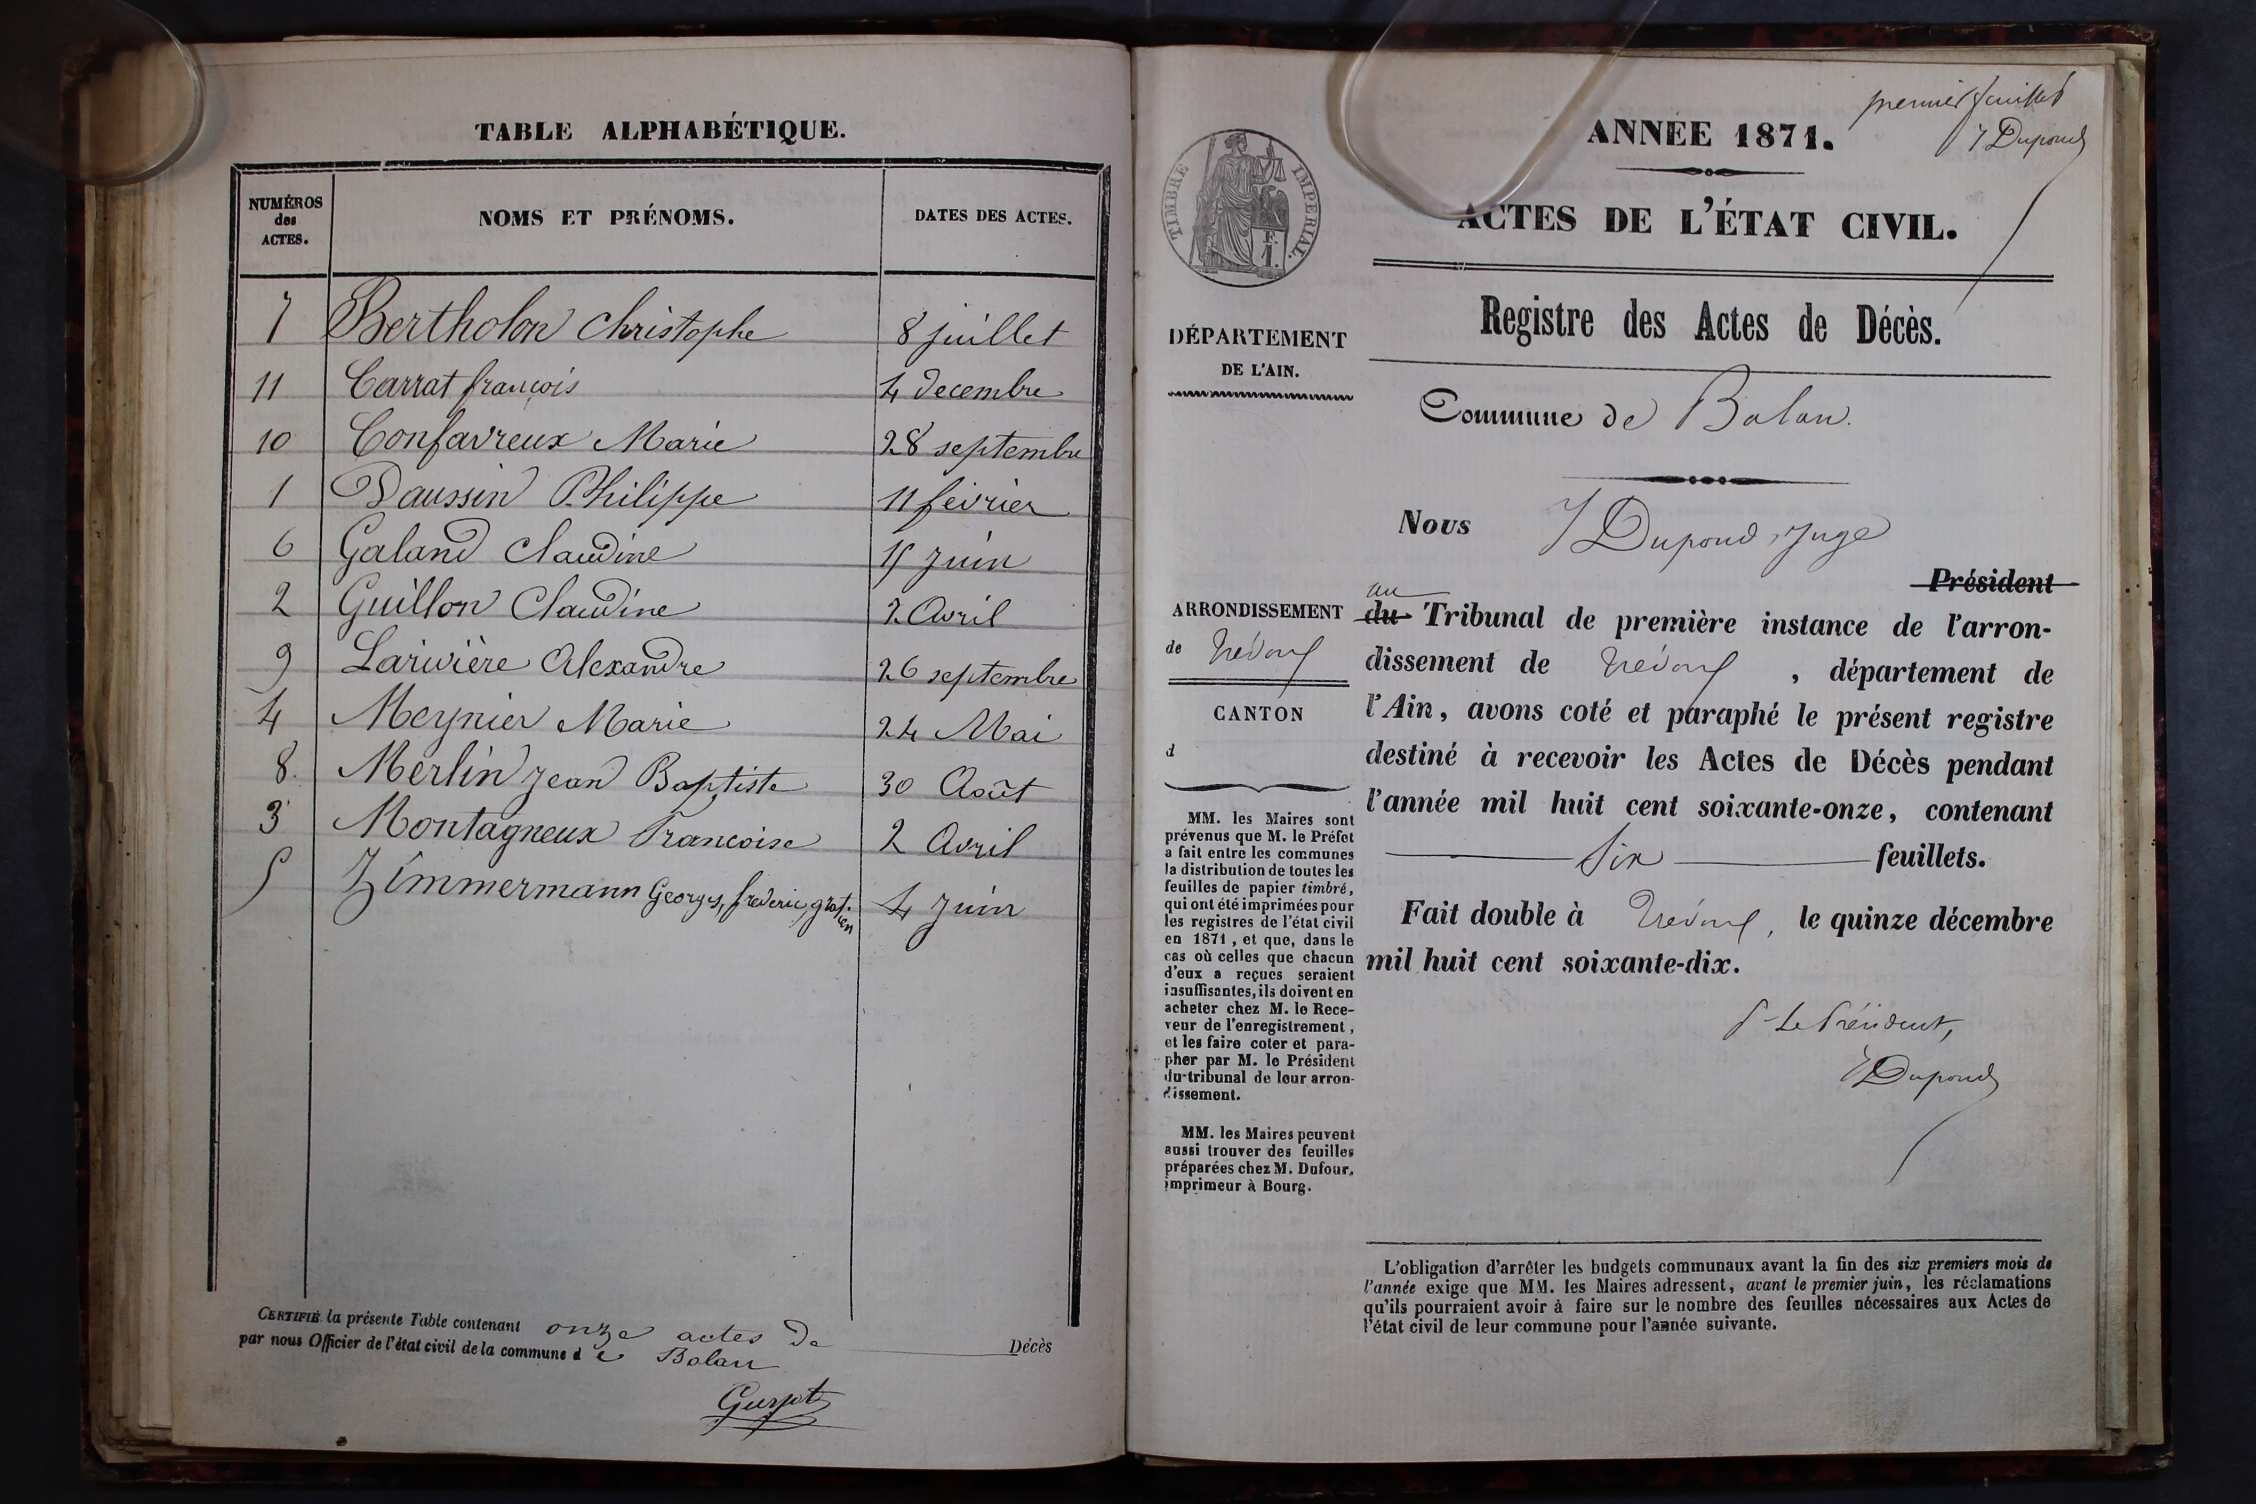 TABLE ALPHABÉTIQUE.
NUMÉROS des ACTES. NOMS ET PRÉNOMS. DATES DES ACTES.
7 Bertholon Christophe 8 juillet
11 Carrat françois 4 decembre
10 Confavreux Marie 28 septembre
1 Daussin Philippe 11 février
6 Galand Claudine 15 juin
2 Guillon Claudine 2 Avril
9 Larivière Alexandre 26 septembre
4 Meynier Marie 24 Mai
8. Merlin jean Baptiste 30 Août
3 Montagneux Francoise 2 Avril
5 Zimmermann Georges, frederic, 4 juin
CERTIFIÉ la présente Table contenant onze actes de Décès
par nous Officier de l'état civil de la commune de Balan
premier feuillet
J Dupond
ANNÉE 1871.
ACTES DE L'ÉTAT CIVIL.
TIMBRE IMPÉRIAL.
F.
1.
Registre des Actes de Décès.
DÉPARTEMENT
DE L'AIN.
Commune de Balan.
Nous J Dupond, Juge
Président
ARRONDISSEMENT
de Trévoux
CANTON
d
MM. les Maires sont
prévenus que M. le Préfet
a fait entre les communes
la distribution de toutes les
feuilles de papier timbré,
qui ont été imprimées pour
les registres de l'état civil
en 1871, et que, dans le
cas où celles que chacun
d'eux a reçues seraient
insuffisantes, ils doivent en
acheter chez M. le Rece-
veur de l'enregistrement,
et les faire coter et para-
pher par M. le Président
du tribunal de leur arron-
dissement.
MM. les Maires peuvent
aussi trouver des feuilles
préparées chez M. Dufour,
imprimeur à Bourg.
au
du Tribunal de première instance de l'arron-
dissement de Trévoux, département de
l'Ain, avons coté et paraphé le présent registre
destiné à recevoir les Actes de Décès pendant
l'année mil huit cent soixante-onze, contenant
Six feuillets.
Fait double à Trévoux, le quinze décembre
mil huit cent soixante-dix.
Pr Le Président,
J Dupond
L'obligation d'arrêter les budgets communaux avant la fin des six premiers mois de
l'année exige que MM. les Maires adressent, avant le premier juin, les réclamations
qu'ils pourraient avoir à faire sur le nombre des feuilles nécessaires aux Actes de
l'état civil de leur commune pour l'année suivante.